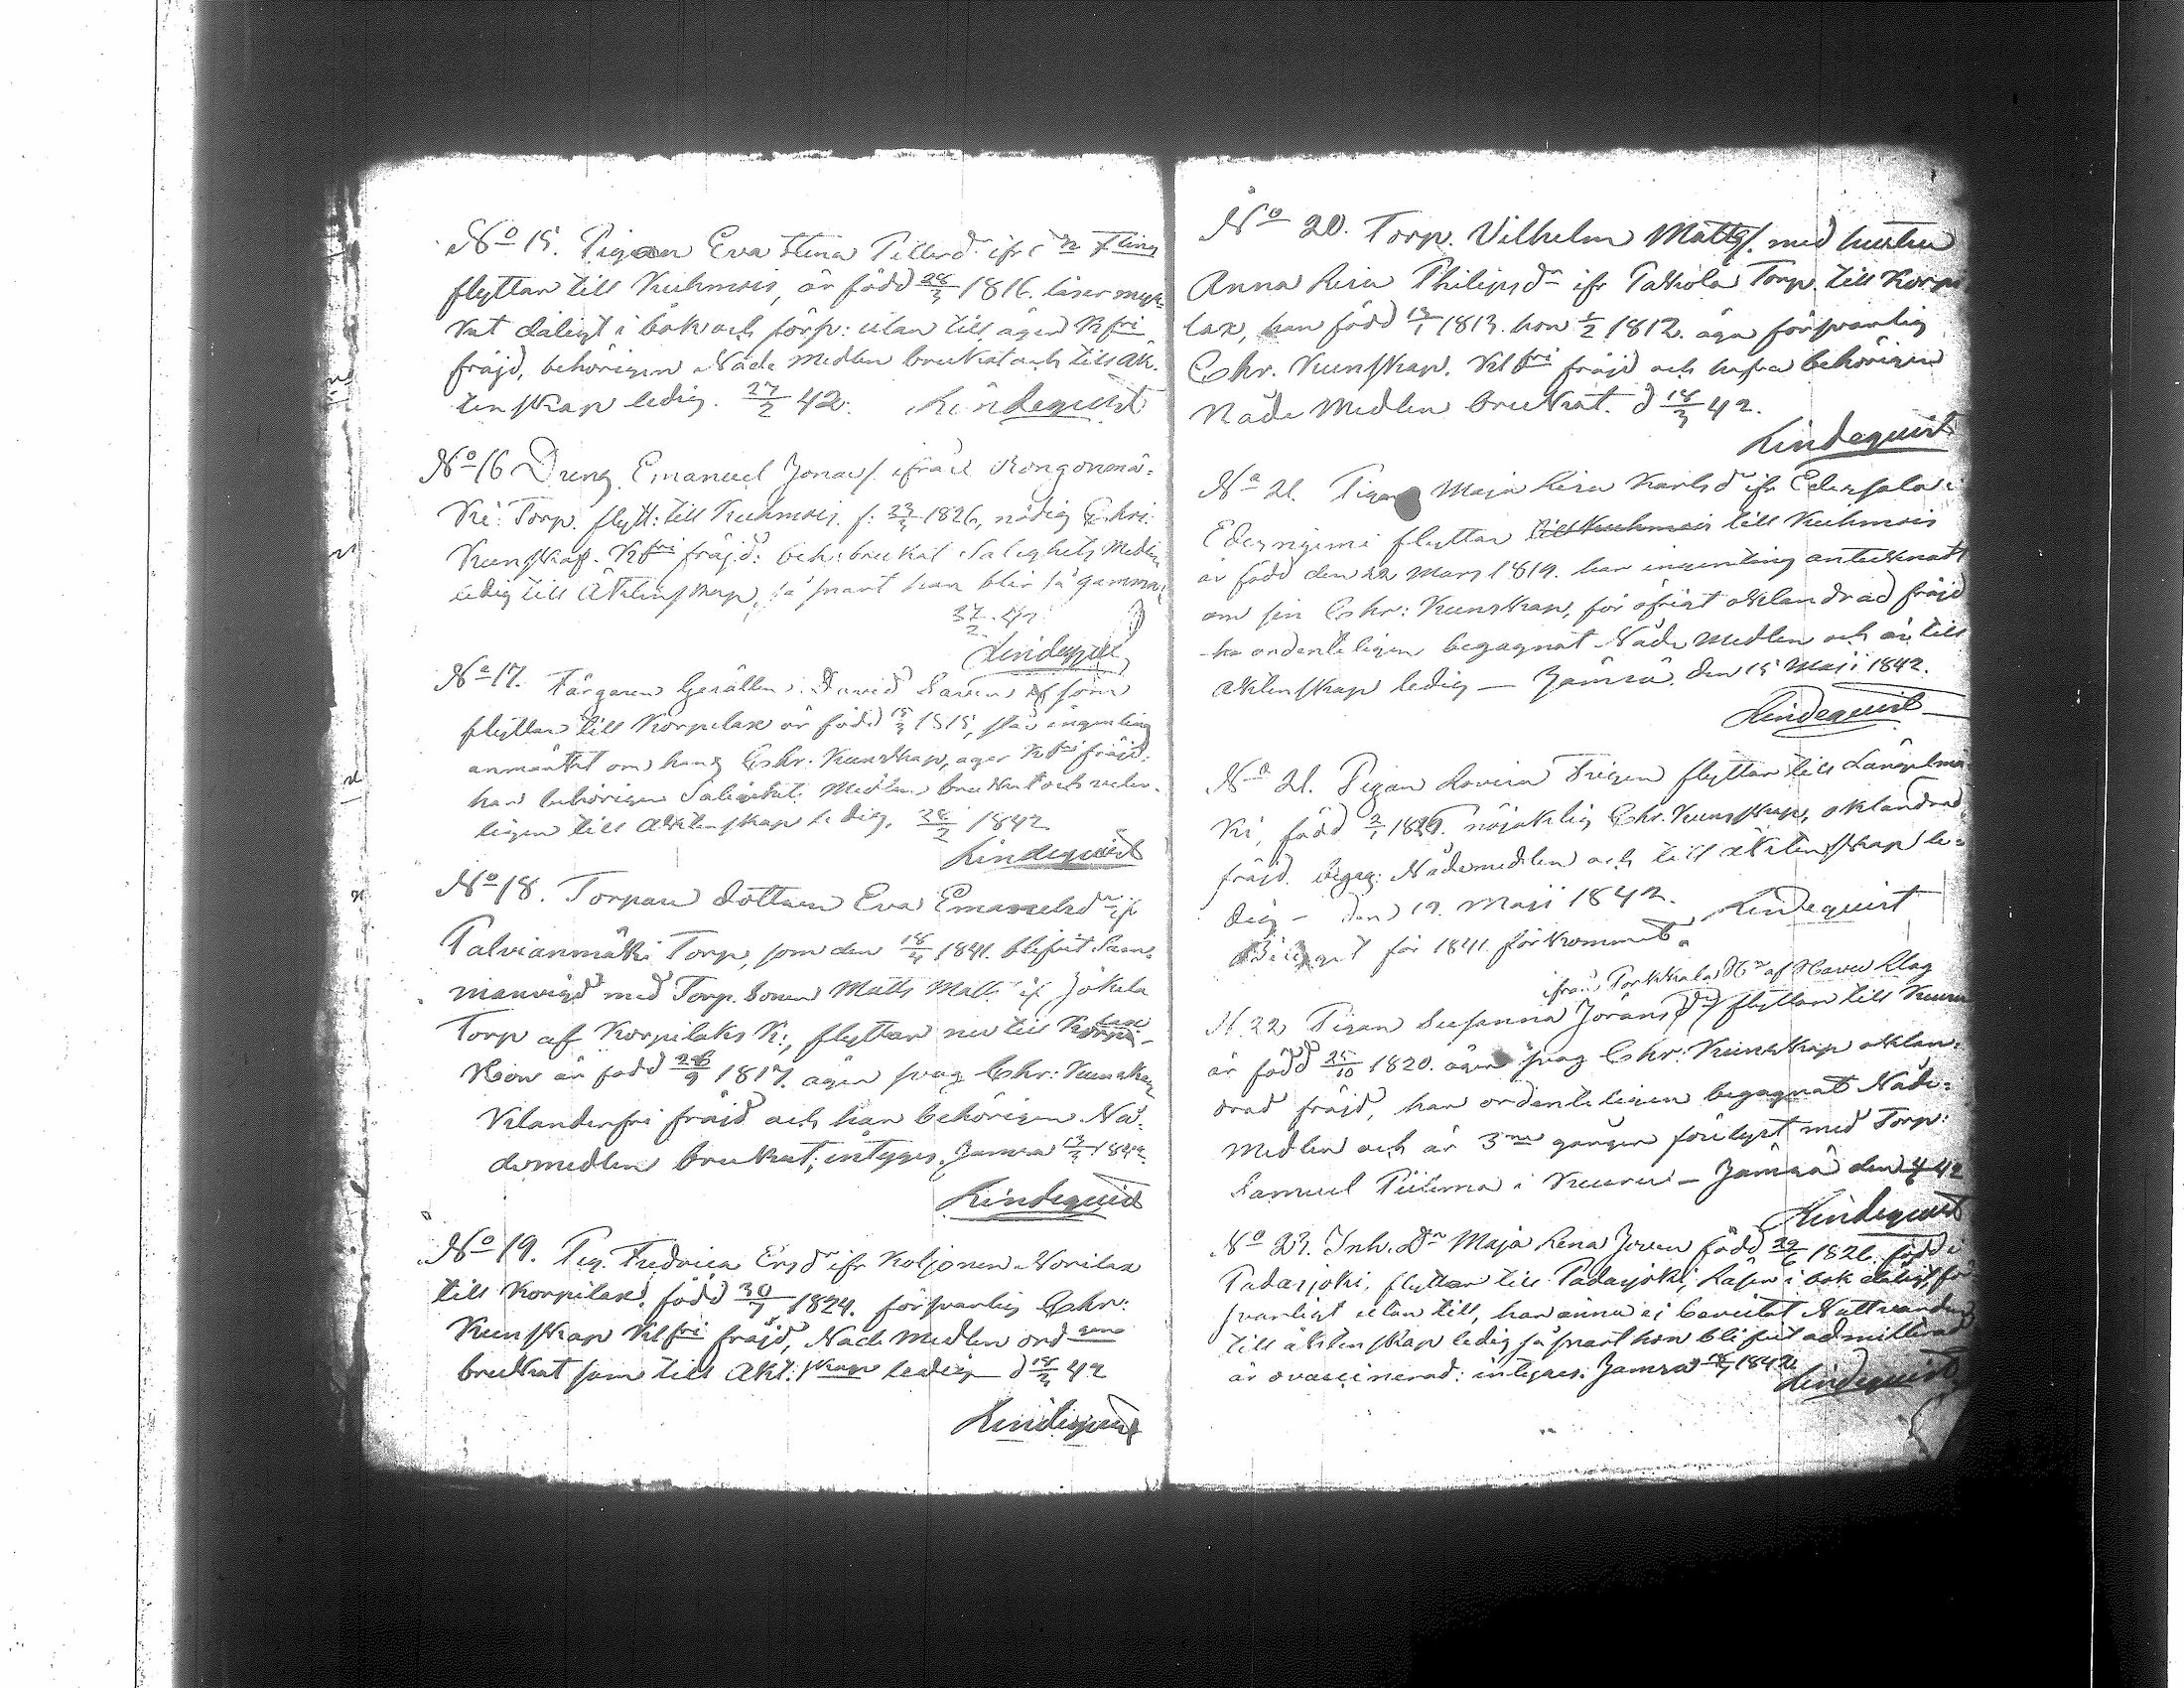 No 15. Pigan Eva Stina Pellersdr ifr
flyttar till Kuhmois, är född 28/3 1816. läser myc-
ket dåligt i bok och förs: utan till, äger Klfri
fräjd, behörigen Nåde Medlen brukat och till äk-
tenskap ledig. 27/2 42. Lindequist
No 16 Dreng Emanuel Jonass. ifrån Rongonmä-
ki Torp. flytt: till Kuhmois. f: 23/ 1826, nödig Chri:
Kunskap. Klfri fräjd: beh: brukat Salighets Medlen
ledig till Äktenskap, så snart han blir så gammal
27/2 42.
Lindequist
No 17. Färgaren Gesällen David Saren som
flyttar till Korpilax är född 15/3 1815, står ingenting
anmärkt om hans Chr. Kunskap, äger Klfri fräjd,
har behörigen Salighets Medlen brukat och veter-
ligen till äktenskap ledig. 28/2 1842
Lindequist
No 18. Torpare dottern Eva Emanuelsdr if
Palvianmäki Torp, som den 18/4 1841. blifvit Sam-
manvigd med Torp. Sonen Matts Matts if Jokela
Torp af Korpilaks K:, flyttar nu till Korpilax
Hon är född 28/9 1817. äger svag Chr: Kunskap
Klanderfri fräjd och har behörigen Nå-
demedlen brukat; intyges. Jämsä 13/3 1842.
Lindequist
No 19. Pig. Fredrica Ersdr ifr Koljonen Norilax
till Korpilax, född 30/7 1824. försvarlig Chr:
Kunskap Klfri fräjd, Nåde Medlen ord gen
brukat samt till Äkt:skap ledig d 18/3 42
Lindequist
No 20. Torp. Vilhelm Mattss. med hustru
Anna Lisa Philipsdr ifr Pakola Torp. till Korpi
lax, han född 13/1 1813. hon 5/2 1812. äga försvarlig
Chr. Kunskap. Klfri fräjd och hafva behörigen
Nåde Medlen brukat. d 18/3 42.
Lindequist
No 21. Pigan Maja Lisa Karlsdr ifr Edessalo i
Edesniemi flyttar till Kuhmois till Kuhmois
är född den 22 Mars 1819. har ingenting antecknadt
om sin Chr: Kunskap, för öfrigt oklandrad fräjd
har ordenteligen begagnat Nåde Medlen och är till
äktenskap ledig — Jämsä. den 15 Maji 1842.
Lindequist
No 21. Pigan Lovisa Frigen flyttar till Längelmä
ki, född 2/1 1820. nöjaktig Chr. Kunskap, oklandrad
fräjd. begag: Nådemedlen och till äktenskap le-
dig — den 19. Maji 1842. Lindequist
Betyget för 1841. förkommet.
ifrån Porkkala Hn af Havu Klag
N. 22 Pigan Susanna Jöransdr flyttar till Keuru
är född 25/10 1820. äger svag Chr: Kunskap oklan-
drad fräjd, har ordenteligen begagnat Nåde-
Medlen och är 3ne gånger förelyst med Torp:
Samuel Piilima i Keuru — Jämsä den 42
Lindequist
No 23. Inh. Dr Maja Lena Joven född 29/6 1826. född i
Padasjoki, flyttar till Padasjoki, Läser i bok dåligt, för
svarligt utan till, har ännu ej bevistat Nattvarden
till äktenskap ledig så snart hon blifvit admitterad
är ovaccinerad: intyges. Jämsä 1842
Lindequist